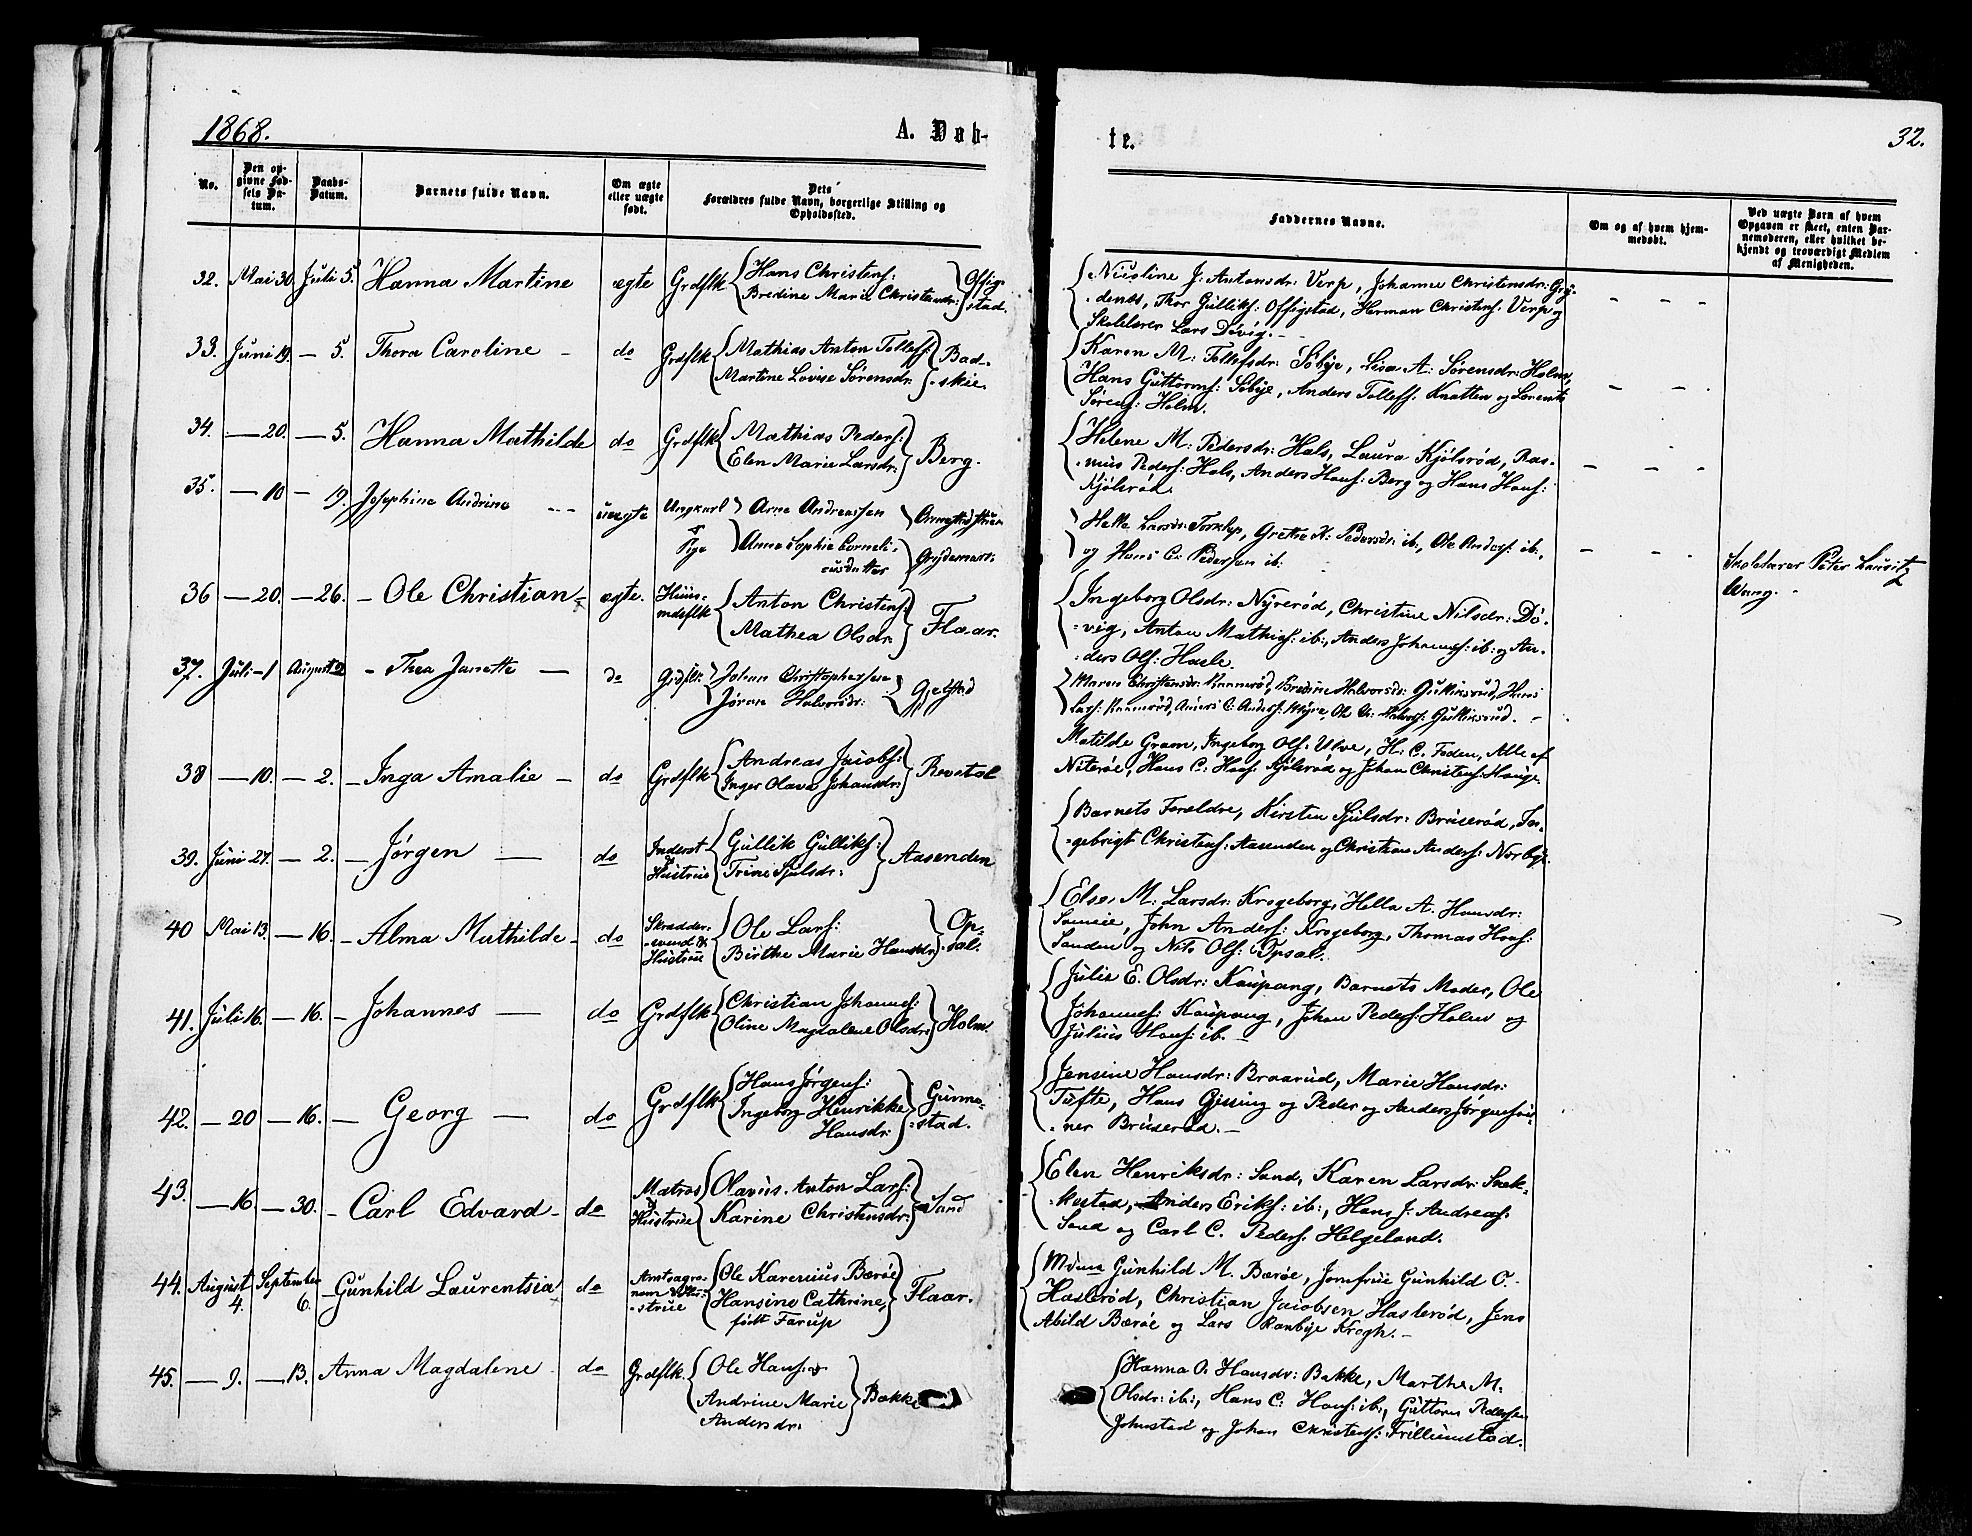 1868.
A. Døb-
te.
32.
No.
Den op-
givne Fød-
sels Da-
tum.
Daabs-
Datum.
Barnets fulde Navn.
Om ægte
eller uægte
født.
Dets
Forældres fulde Navn, borgerlige Stilling og
Opholdssted.
Faddernes Navne.
Om og af hvem hjem-
medøbt.
Ved uægte Børn af hvem
Opgaven er skeet, enten Bar-
nemoderen, eller hvilket be-
kjendt og troværdigt Medlem
af Menigheden.
32. Mai 30. Juli 5. Hanna Martine ægte Grdflk Hans Christens:
Bredine Marie Christensdr: Offig-
stad.
Nicoline J: Antonsdr: Verp, Johanne Christensdr: Gry-
denæs, Thor Gulliks: Offigstad, Herman Christens: Verp og
Skolelærer Lars Døvig.
33. Juni 19. — 5. Thora Caroline — do Grdflk Mathias Anton Tollefs:
Martine Lovise Sørensdr. Bad-
skie.
Karen M: Tollefsdr: Søbye, Lisa A: Sørensdr: Holm,
Hans Guttorms: Søbye, Anders Tollefs. Knatten og Lorents
Sørens: Holm.
34. — 20. — 5. Hanna Mathilde do Grdflk Mathias Peders:
Elen Marie Larsdr: Berg.
Helene M: Pedersdr: Hals, Laura Kjølsrød, Ras-
mus Peders: Hals, Anders Hans: Berg og Hans Hans:
Kjølsrød.
35. — 10 — 19. Josephine Andrine uægte Ungkarl Arne Andreassen
Pige Anna Sophie Corneli-
usdatter
Hella Larsdr: Torklep, Grethe K: Pedersdr: ib:, Ole Anders: ib:,
og Hans C: Pedersen ib:
Skolelærer Peter Lauritz
Wang.
36 — 20. — 26. — Ole Christian — ægte. Huus-
mdsflk Anton Christens:
Mathea Olsdr. Flaar.
Ingeborg Olsdr: Nyrerød, Christine Nilsdr: Dø-
vig, Anton Mathias: ib:, Anders Johannes: ib: og An-
ders Ols: Hasle.
37. Juli — 1 August 2 — Thea Janette — do Grdflk: Johan Christophersen
Jøran Halvorsdr: Gjelstad
Maren Christensdr: Ramsrød, Bredine Halvorsdr: Gulliksrud, Hans
Lars: Ramsrød, Anders C: Anders: Høyre, Ole Chr: Halvors: Gulliksrud. —
38 — 10. — 2. — Inga Amalie — do Grdflk Andreas Jacobs:
Inger Olava Johansdr: Revetal
Matilde Gram, Ingeborg Ols: Ulve, H. C. Foden, Alle af
Niterøe, Hans C: Hans: Kjølsrød og Johan Christens: Hauge.
39. Juni 27. — 2. — Jørgen — do Inderst
& Hustrue Gullik Gulliks:
Trine Sjulsdr: Aasenden
Barnets Forældre, Kirsten Sjulsdr: Bruserød, In-
gebrigt Christens: Aasenden og Christian Anders: Norbye.
40 Mai 13. — 16. — Alma Mathilde — do Skrædder-
svend &
Hustrue Ole Lars:
Birthe Marie Hansdr: Op-
sal.
Else M: Larsdr: Krogeborg, Hella A: Hansdr:
Sameie, John Anders: Krogeborg, Thomas Hans:
Sanden og Nils Ols: Opsal.
41. Juli 16. — 16. — Johannes — do Grdflk Christian Johannes:
Oline Magdalene Olsdr: Holm
Julie E. Olsdr: Kaupang, Barnets Moder, Ole
Johannes: Kaupang, Johan Peders: Holm og
Julius Hans: ib. —
42. — 20 — 16. — Georg — do Grdflk Hans Jørgens:
Ingeborg Henrikke
Hansdr: Gunne-
stad.
Jensine Hansdr: Braarud, Marie Hansdr:
Tufte, Hans Gjising og Peder og Anders Jørgensøn-
ner Bruserød. —
43. — 16. — 30. — Carl Edvard — do Matros
&
Hustrue Olavus Anton Lars:
Karine Christensdr: Sand
Elen Henriksdr: Sand, Karen Larsdr: Snek-
kestad, Anders Eriks: ib:, Hans J: Andreas:
Sand og Carl C. Peders. Helgeland.
44. August
4. September
6. — Gunhild Laurentsia do Amtsagro-
nom & Hu-
strue Ole Karenius Bærøe
Hansine Cathrine,
født Farup Flaar.
Gunhild M. Bærøe, Jomfrue Gunhild O.
Haslerød, Christian Jacobsen Haslerød, Jens
Abild Bærøe og Lars Krogh. —
45. — 9. — 13. Anna Magdalene do Grdflk. Ole Hans: &
Andrine Marie
Andersdr: Bakke
Hanna O. Hansdr: Bakke, Marthe M.
Olsdr: ib:, Hans C: Hans: ib:, Guttorm Pedersen
Johnstad og Johan Christens: Trillumstad.